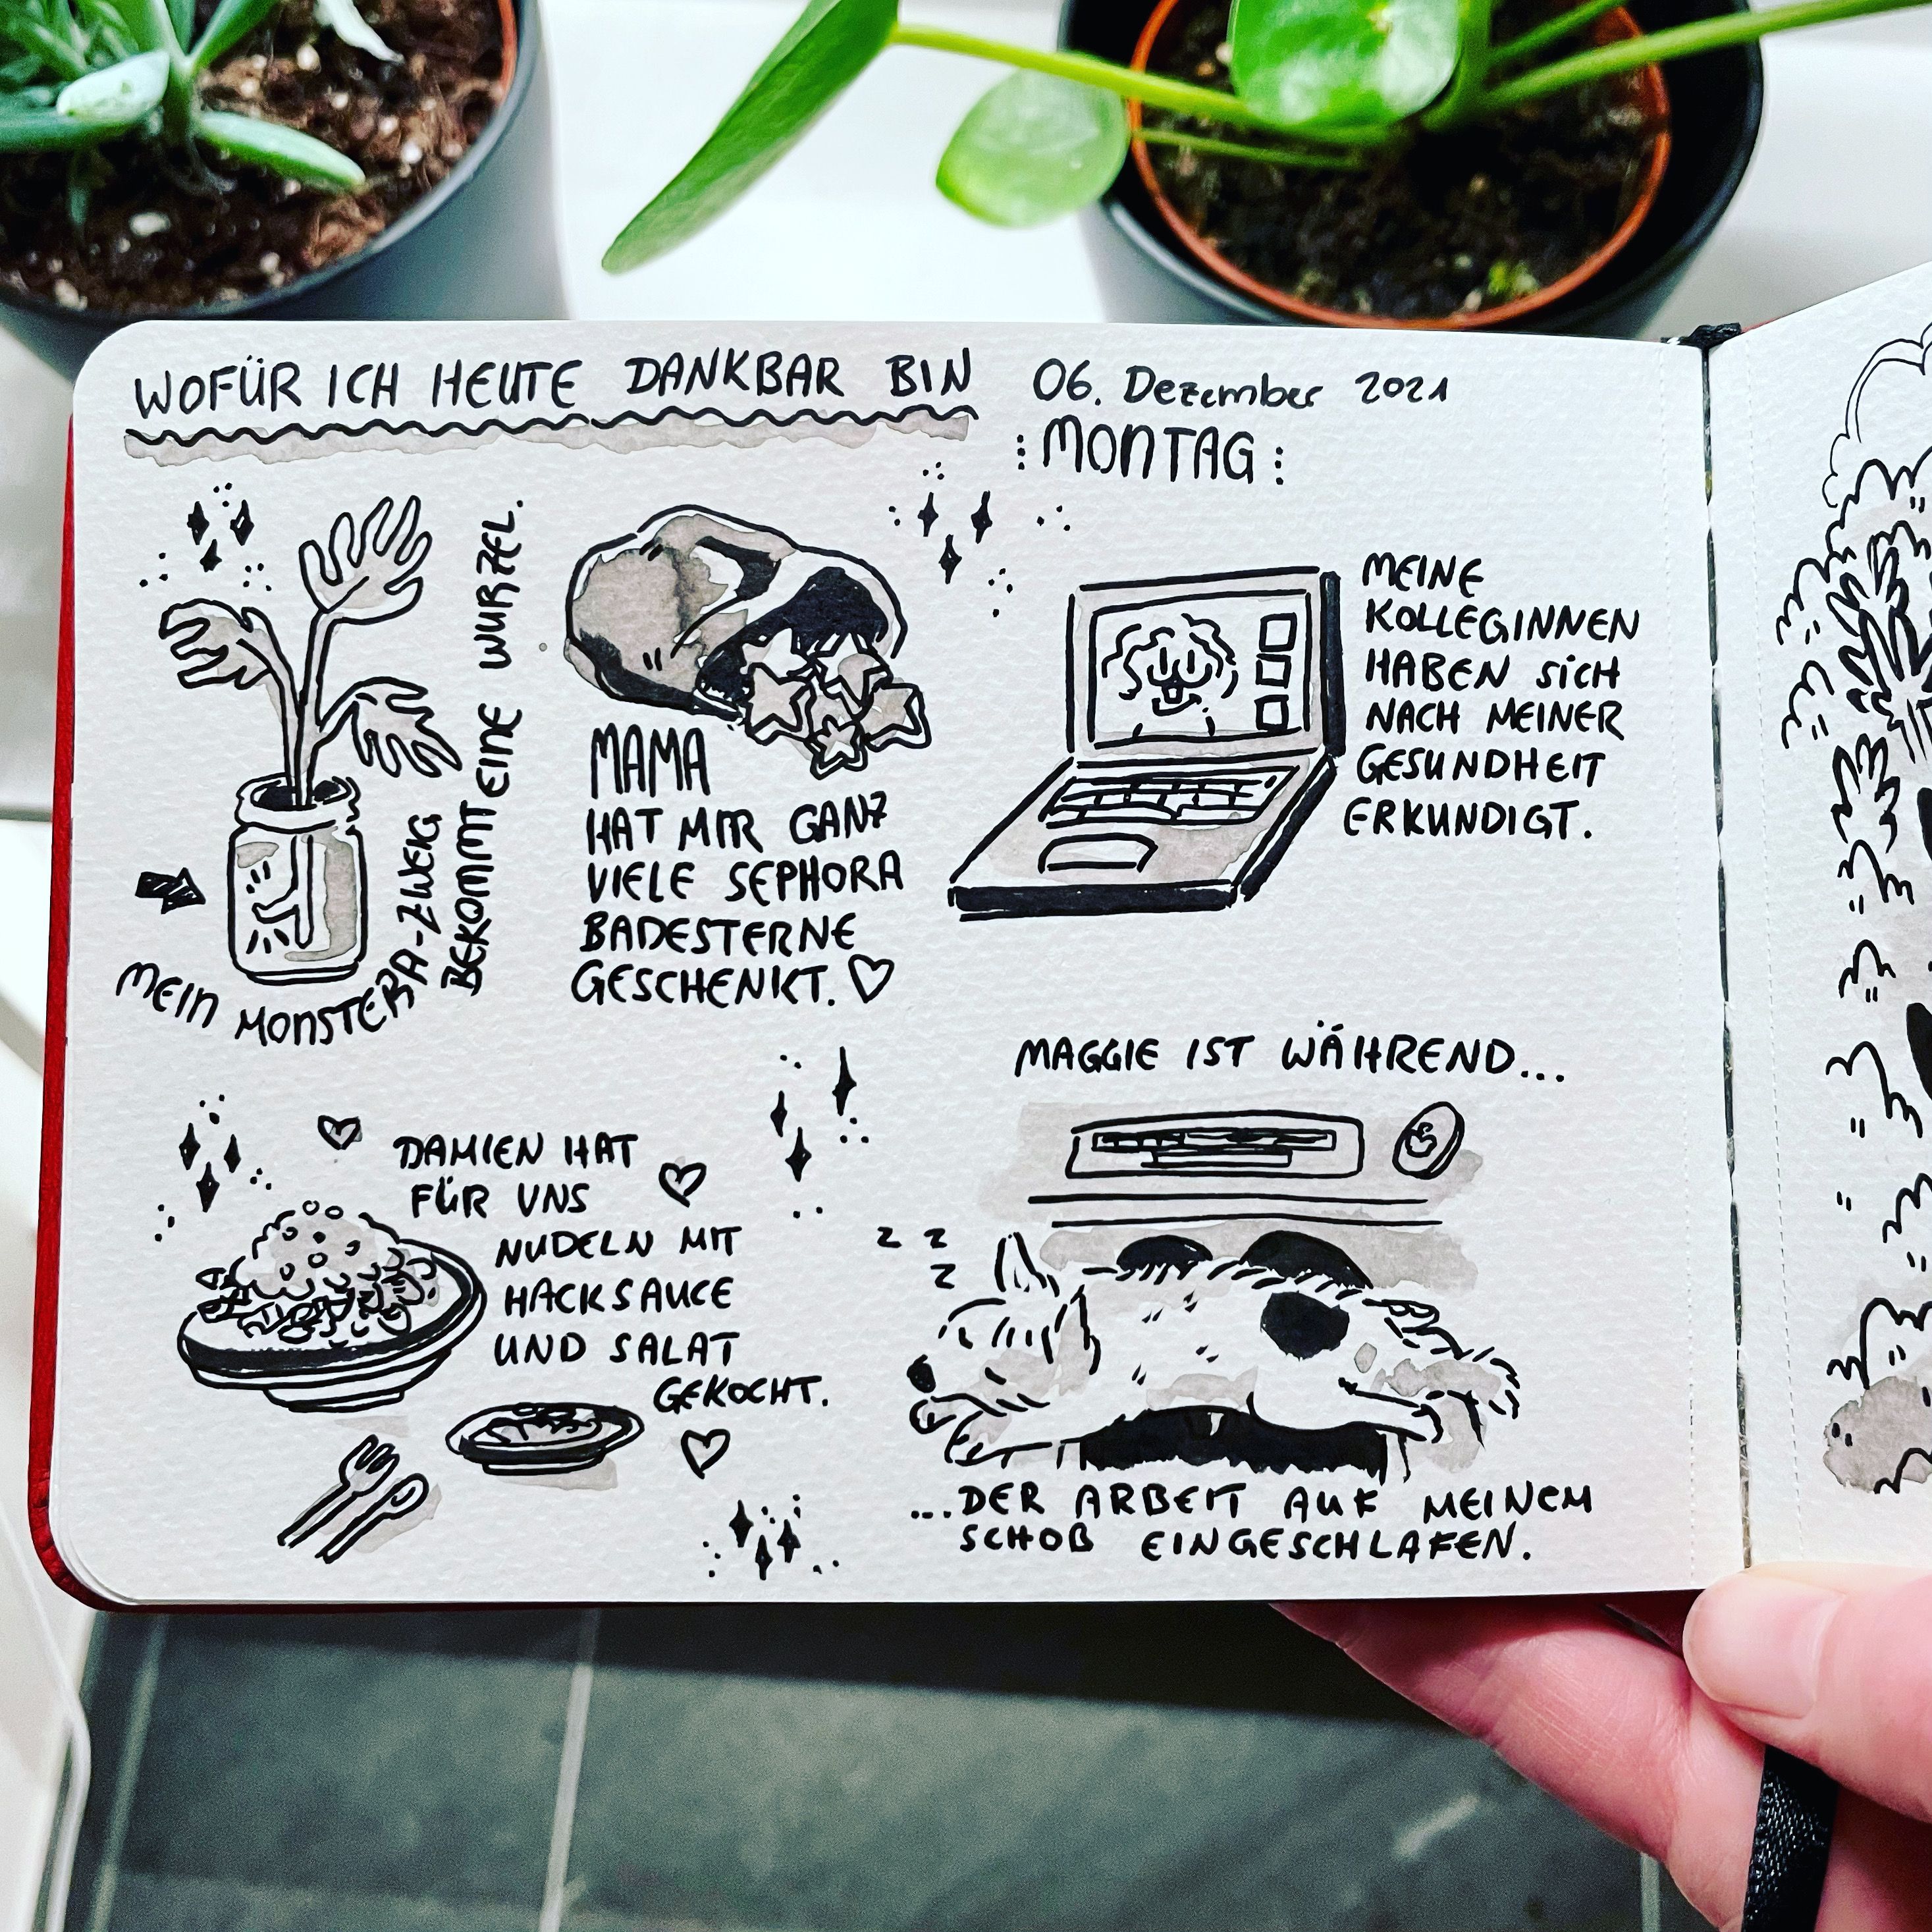 WOFÜR ICH HEUTE DANKBAR BIN
06. Dezember 2021
:MONTAG:
MEIN MONSTERA-ZWEIG
BEKOMMT EINE WURZEL.
MAMA
HAT MIR GANZ
VIELE SEPHORA
BADESTERNE
GESCHENKT.
MEINE
KOLLEGINNEN
HABEN SICH
NACH MEINER
GESUNDHEIT
ERKUNDIGT.
DAMIEN HAT
FÜR UNS
NUDELN MIT
HACKSAUCE
UND SALAT
GEKOCHT.
MAGGIE IST WÄHREND...
z z
z
...DER ARBEIT AUF MEINEM
SCHOß EINGESCHLAFEN.